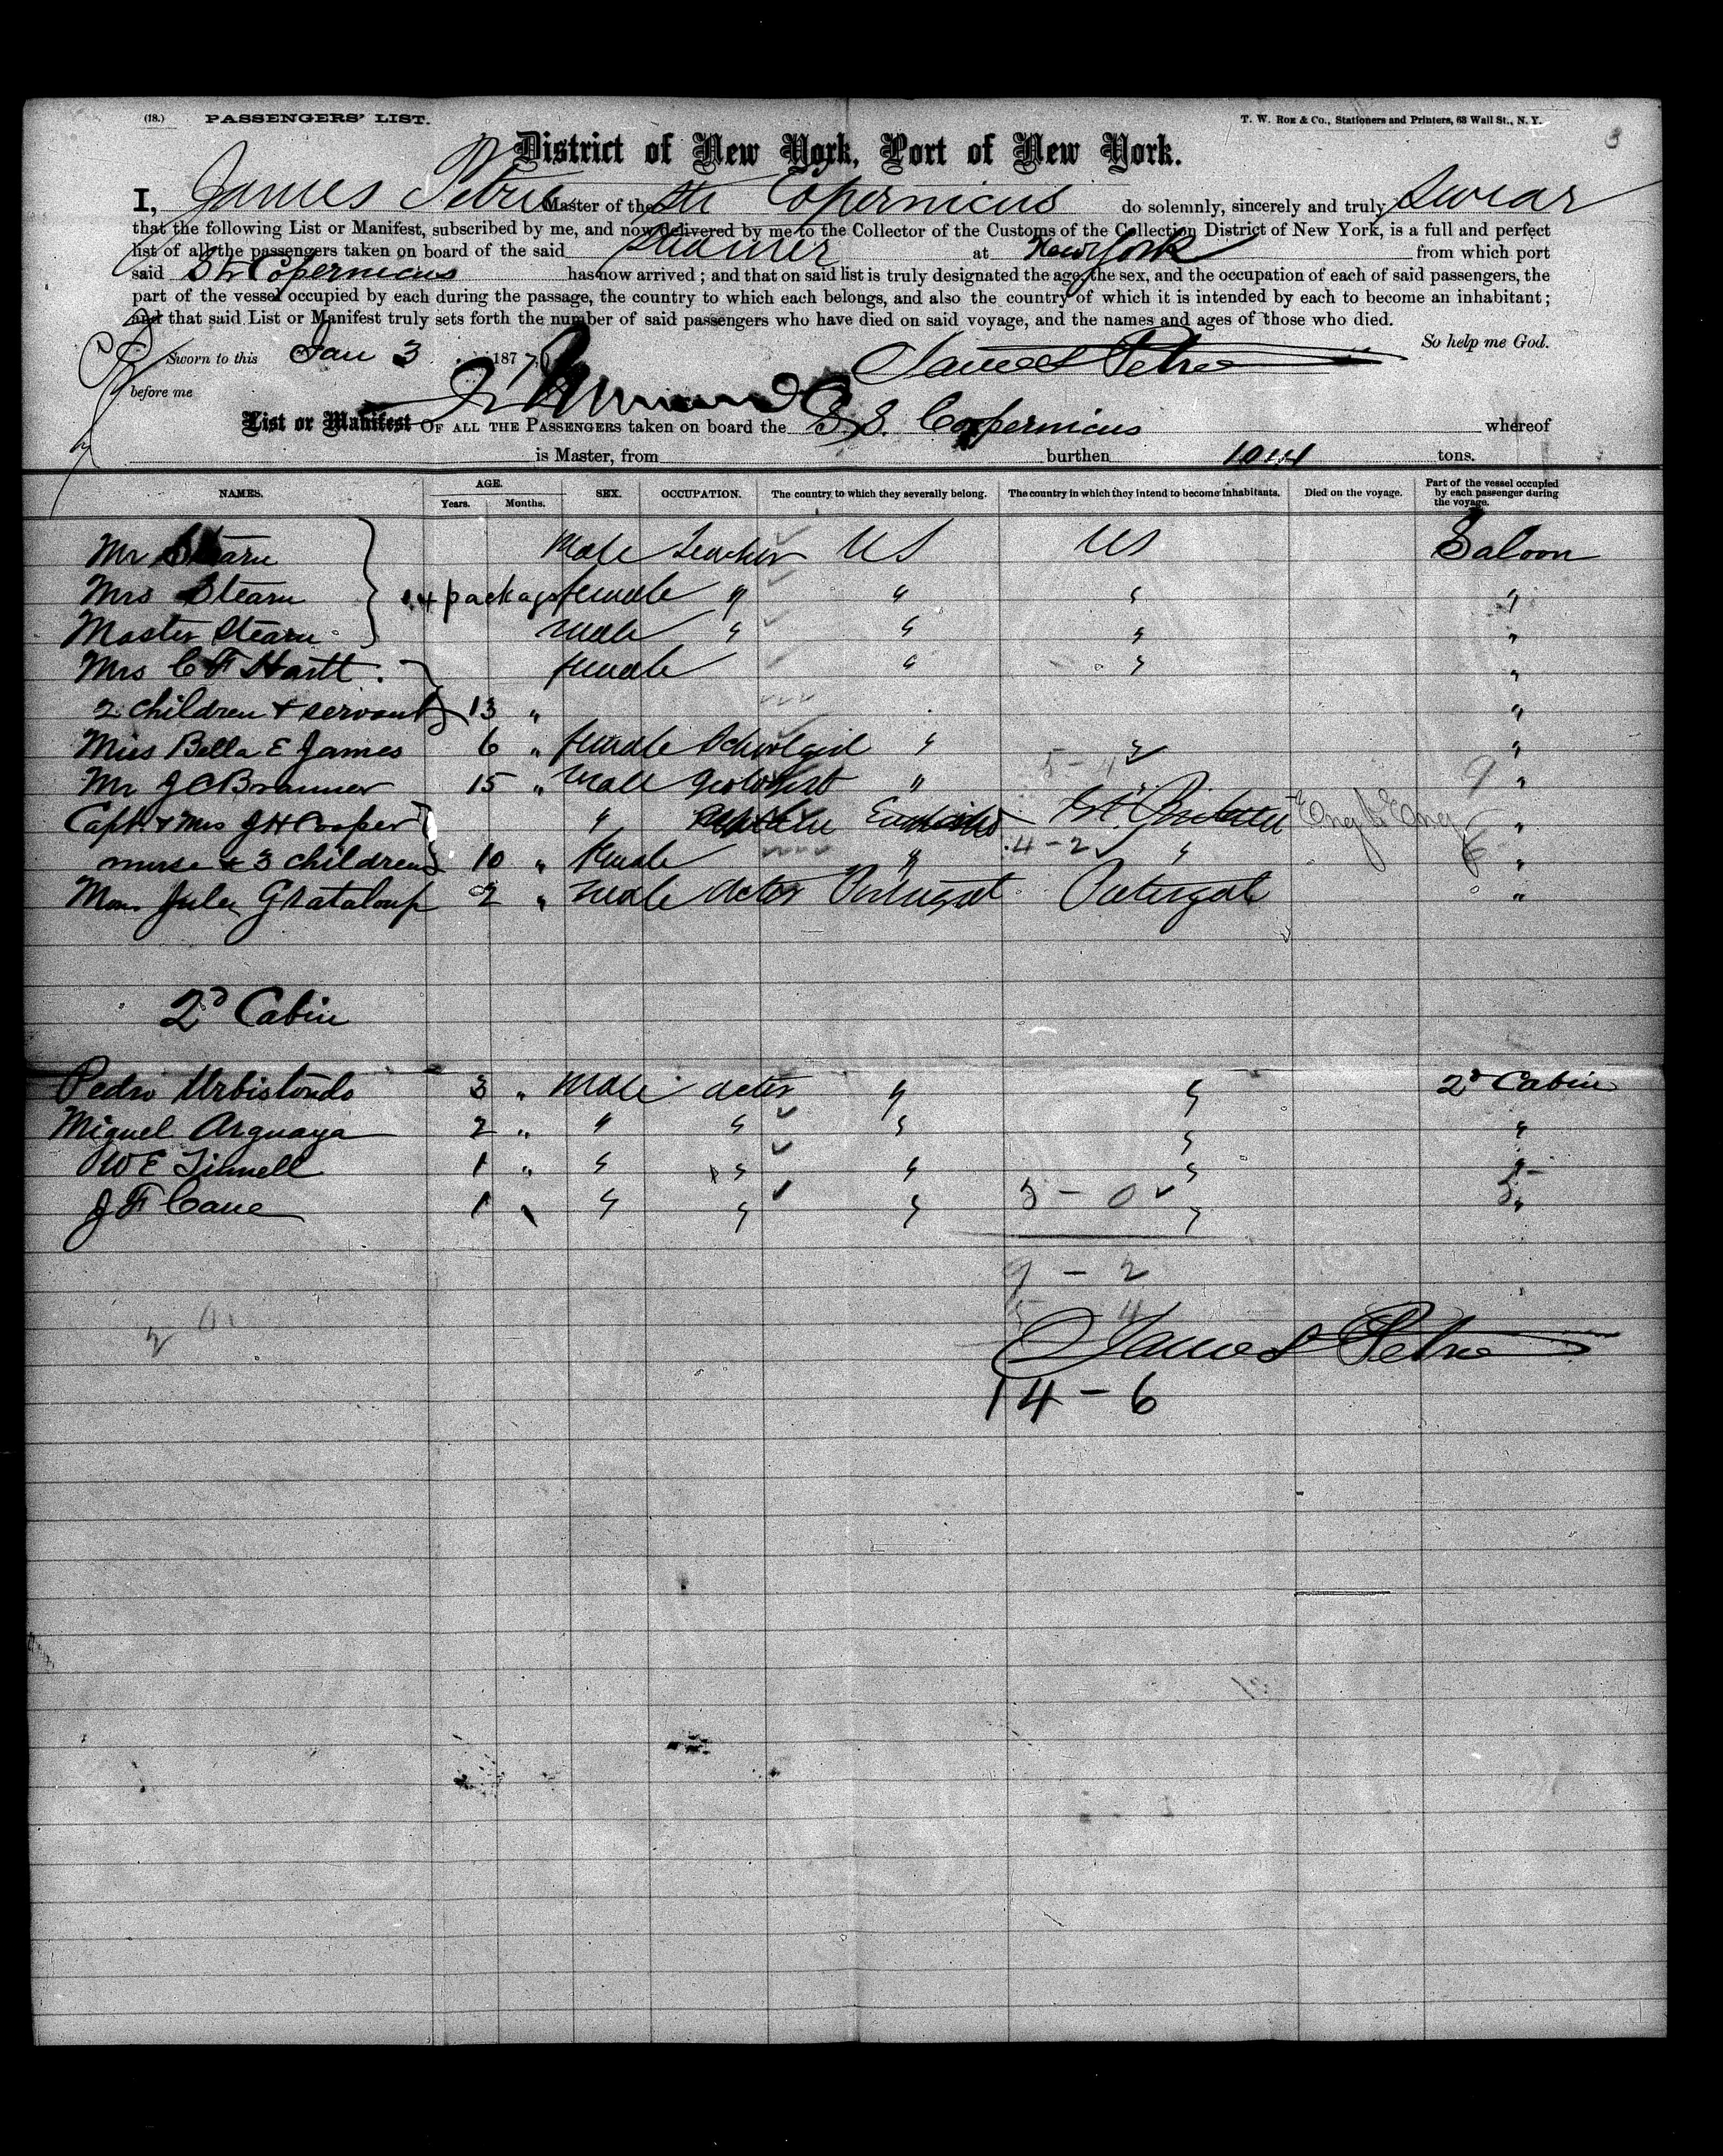 (18.) PASSENGERS' LIST. T. W. Rox & Co., Stationers and Printers, 63 Wall St., N. Y.
3
District of New York, Port of New York.
I, James Petrie Master of the Str Copernicus do solemnly, sincerely and truly swear
that the following List or Manifest, subscribed by me, and now delivered by me to the Collector of the Customs of the Collection District of New York, is a full and perfect
list of all the passengers taken on board of the said steamer at New York from which port
said Str Copernicus has now arrived; and that on said list is truly designated the age, the sex, and the occupation of each of said passengers, the
part of the vessel occupied by each during the passage, the country to which each belongs, and also the country of which it is intended by each to become an inhabitant;
and that said List or Manifest truly sets forth the number of said passengers who have died on said voyage, and the names and ages of those who died.
So help me God.
Sworn to this Jan 3 187 James Petrie
before me
List or Manifest OF ALL THE PASSENGERS taken on board the S.S. Copernicus whereof
is Master, from burthen tons.
NAMES. AGE. Years. Months. SEX. OCCUPATION. The country to which they severally belong. The country in which they intend to become inhabitants. Died on the voyage. Part of the vessel occupied by each passenger during the voyage.
Mr Stearn Male Teacher US US Saloon
Mrs Stearn 14 packages female " " " "
Master Stearn male " " " "
Mrs C F Hartt. female " " "
2 children & servant 13 " "
Miss Bella E James 6 " female Schoolgirl " " "
5 - 4
Mr J C Branner 15 " male geologist " " 9 "
Capt. & Mrs J H Cooper " Gt Britain Eng "
nurse & 3 children 10 " female " 4 - 2 " 6 "
Mon. Jules Grataloup 2 " male actor Portugal Portugal "
2d Cabin
Pedro Urbistondo 3 " Male actor " " 2d Cabin
Miguel Arguaya 2 " " " " " "
W E Tinnell 1 " " " " " "
J F Cane 1 " " " " 5 - 0 " 5 "
9 - 2
5 4
James Petrie
14 - 6